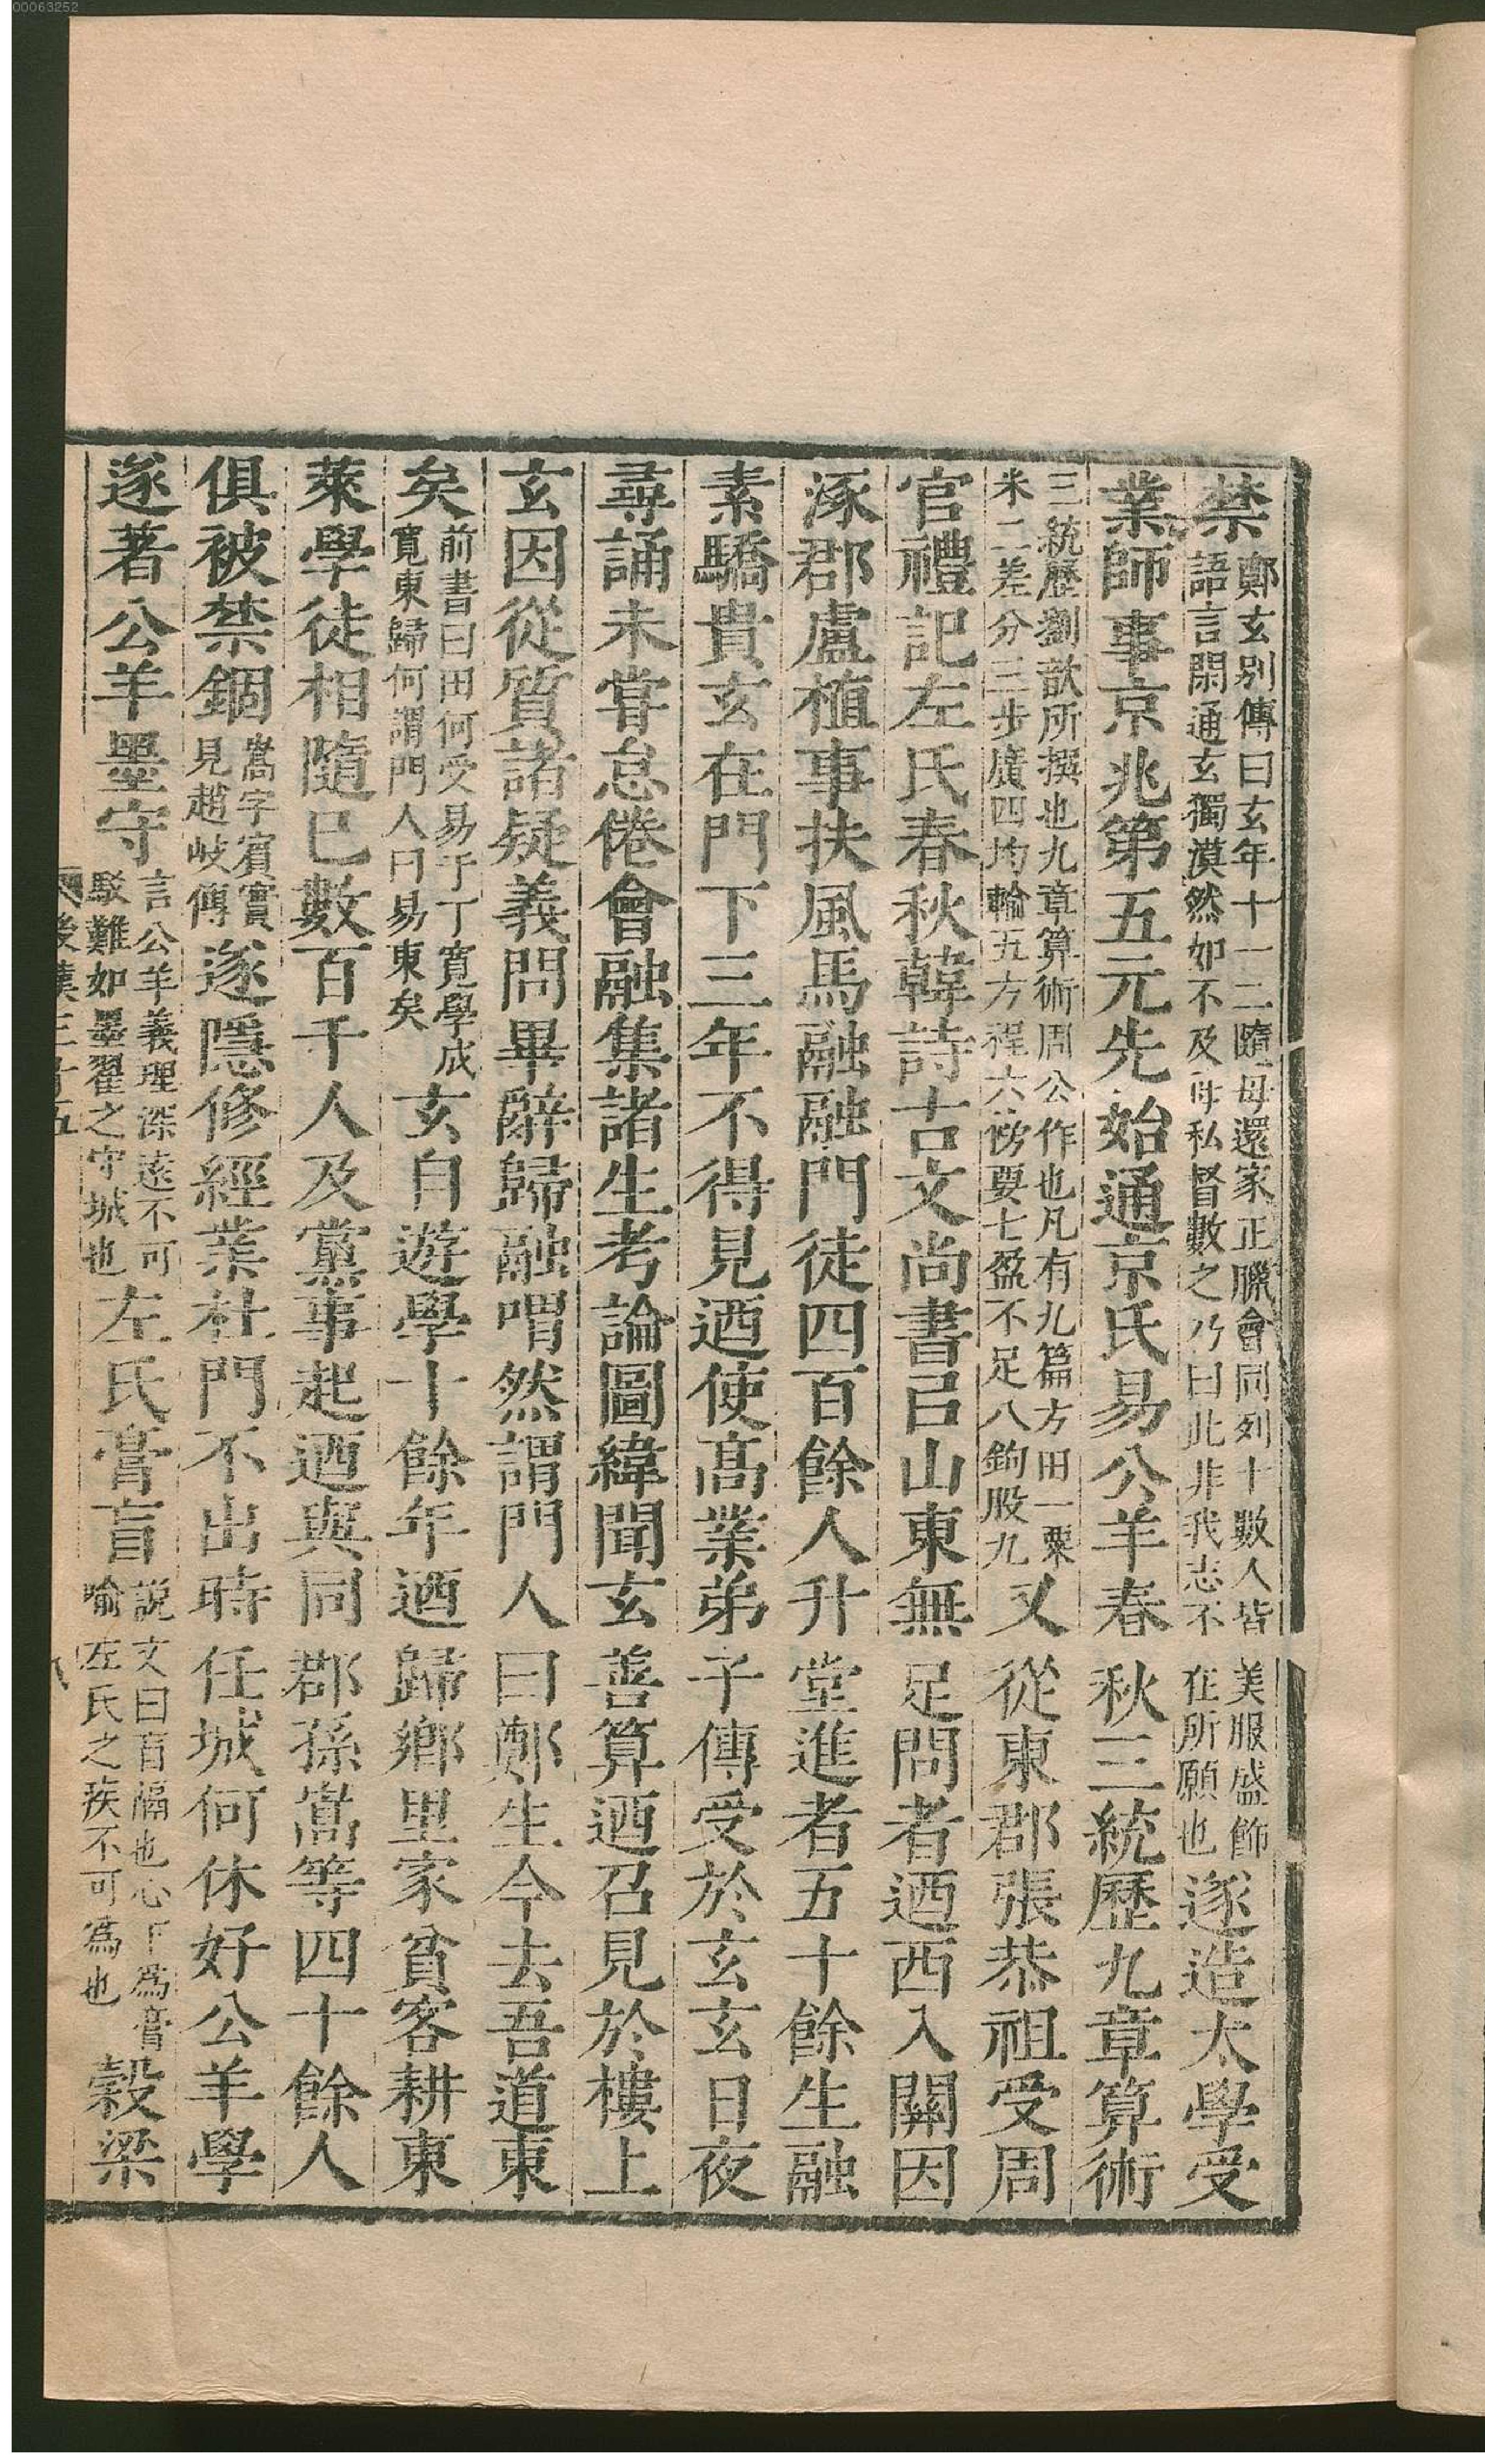 00063252
禁鄭玄別傳曰玄年十一二隨母還家正臘會同列十數人皆美服盛飾語言閑通玄獨漠然如不及母私督數之乃曰此非我志不在所願也遂造太學受
業師事京兆第五元先始通京氏易公羊春秋三統歷九章算術
三統歷劉歆所撰也九章算術周公作也凡有九篇方田一粟米二差分三步廣四均輸五方程六傍要七盈不足八鉤股九又從東郡張恭祖受周
官禮記左氏春秋韓詩古文尚書㠯山東無足問者迺西入關因
涿郡盧植事扶風馬融融門徒四百餘人升堂進者五十餘生融
素驕貴玄在門下三年不得見迺使高業弟子傳受於玄玄日夜
尋誦未嘗怠倦會融集諸生考論圖緯聞玄善算迺召見於樓上
玄因從質諸疑義問畢辭歸融喟然謂門人曰鄭生今去吾道東
矣前書曰田何受易于丁寬學成寬東歸何謂門人曰易東矣玄自遊學十餘年迺歸鄉里家貧客耕東
萊學徒相隨已數百千人及黨事起迺與同郡孫嵩等四十餘人
俱被禁錮嵩字賓實見趙岐傳遂隱修經業杜門不出時任城何休好公羊學
遂著公羊墨守言公羊義理深遠不可駁難如墨翟之守城也左氏膏肓說文曰肓隔也心下爲膏喻左氏之疾不可爲也穀梁
後漢三十五